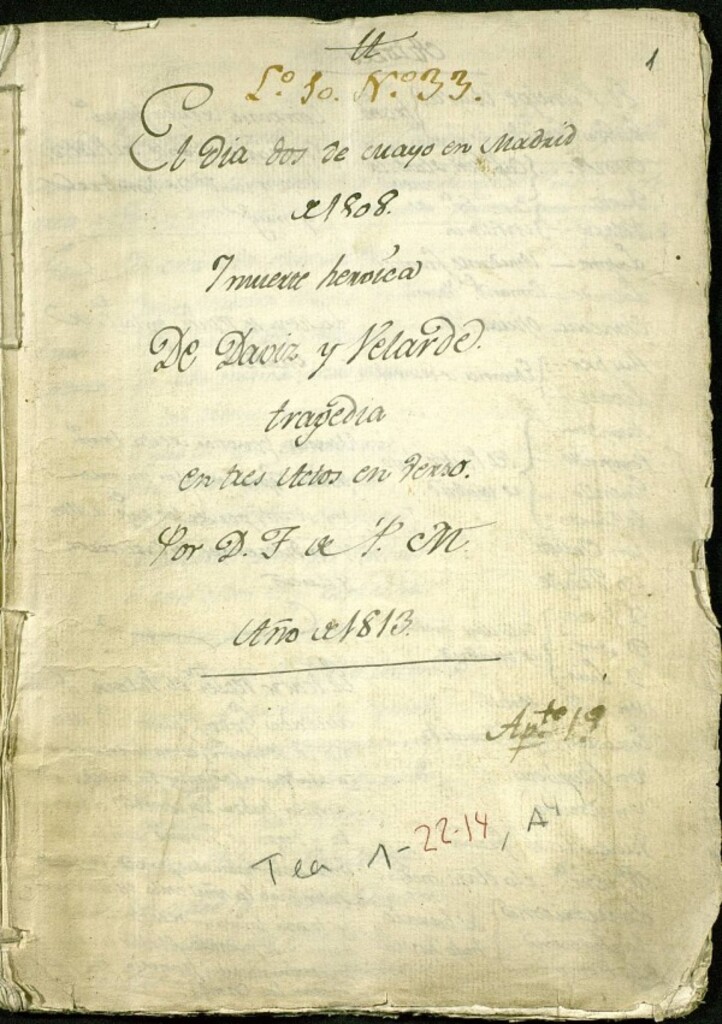 1
L.º 10. N.º 33.
El Dia dos de mayo en Madrid
de 1808.
Y muerte heroica
De Daoiz y Velarde.
tragedia
en tres Actos en verso.
Por D. F. de P. M.
Año de 1813.
Ap.te 1º
Tea 1-22-14, A